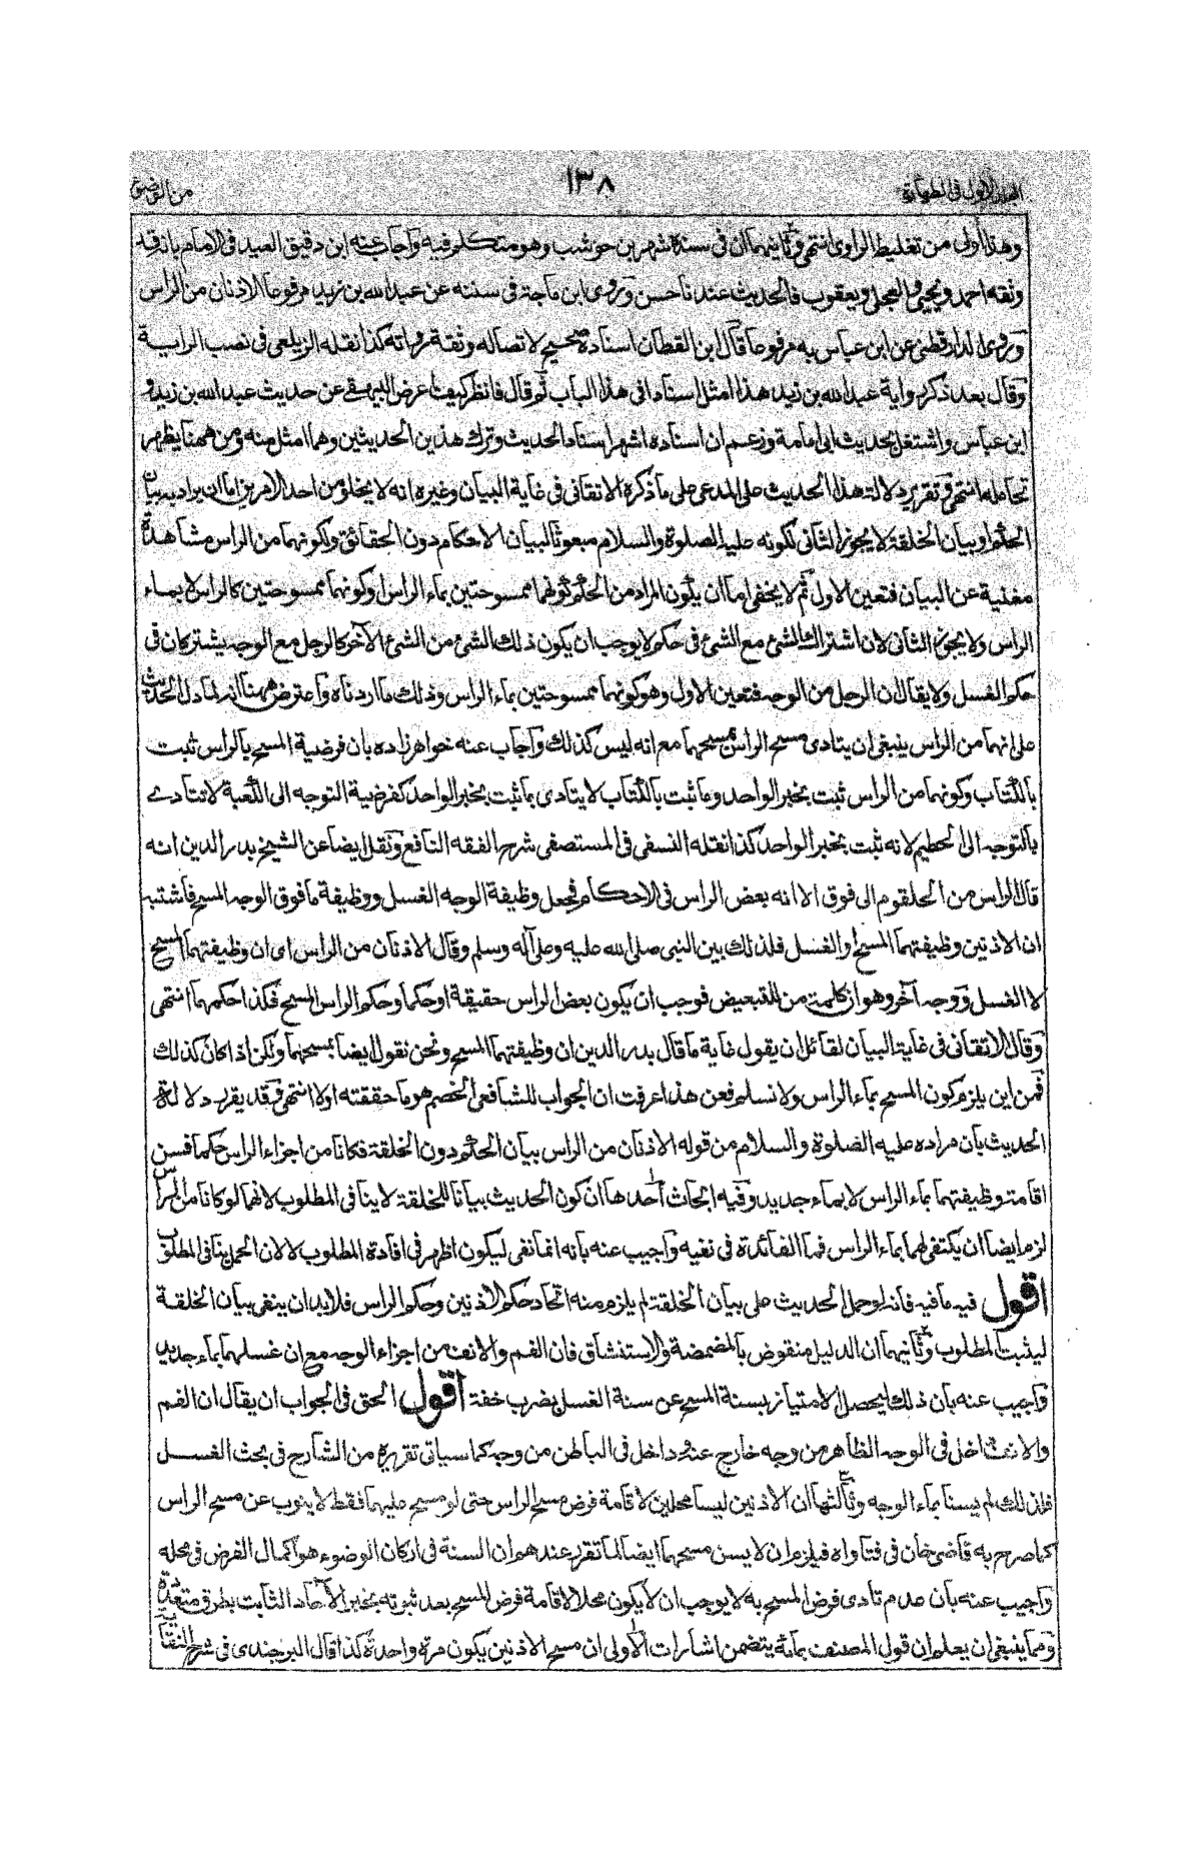 ١٣٨
وهذا أولى من تغليط الراوى انتهى وثانيهما ان فى سنده شهر بن حوشب وهو متكلم فيه وأجاب عنه ابن دقيق العيد فى الامام بانه قد
وثقه احمد ويحيى والعجلى ويعقوب فالحديث عندنا حسن وروى ابن ماجة فى سننه عن عبد الله بن زيد مرفوعا الاذنان من الراس
وروى الدارقطنى عن ابن عباس به مرفوعا قال ابن القطان اسناده صحيح لاتصاله وثقة رواته كذا نقله الزيلعى فى نصب الراية
وقال بعد ذكر رواية عبد الله بن زيد هذا امثل اسناد فى هذا الباب ثم قال فانظر كيف اعرض البيهقى عن حديث عبد الله بن زيد و
ابن عباس واشتغل بحديث ابى امامة وزعم ان اسناده اشهر اسناد الحديث وترك هذين الحديثين وهما امثل منه ومن ههنا يظهر
تحامله انتهى وتقرير دلالة هذا الحديث على المدعى على ما ذكره الاتقانى فى غاية البيان وغيره انه لا يخلو من احد الامرين اما ان يراد به بيان
الحكم او بيان الخلقة لا يجوز الثانى لكونه عليه الصلوة والسلام مبعوثا لبيان الاحكام دون الحقائق ولكونهما من الراس مشاهدة
مغنية عن البيان فتعين الاول ثم لا يخفى اما ان يكون المراد من الحكم كونهما ممسوحتين بماء الراس او كونهما ممسوحتين كالراس لا بماء
الراس ولا يجوز الثانى لان اشتراك الشئ مع الشئ فى حكم لا يوجب ان يكون ذلك الشئ من الشئ الآخر كالرجل مع الوجه يشتركان فى
حكم الغسل ولا يقال ان الرجل من الوجه فتعين الاول وهو كونهما ممسوحتين بماء الراس وذلك ما اردناه واعترض ههنا انه لما دل الحديث
على انهما من الراس ينبغى ان يتادى مسح الراس بمسحهما مع انه ليس كذلك وأجاب عنه خواهرزاده بان فرضية المسح بالراس ثبت
بالكتاب وكونهما من الراس ثبت بخبر الواحد وما ثبت بالكتاب لا يتادى بما ثبت بخبر الواحد كفرضية التوجه الى الكعبة لا تتادے
بالتوجه الى الحطيم لانه ثبت بخبر الواحد كذا نقله النسفى فى المستصفى شرح الفقه النافع ونقل ايضا عن الشيخ بدر الدين انه
قال الراس من الحلقوم الى فوق الا انه بعض الراس فى الاحكام فجعل وظيفة الوجه الغسل ووظيفة ما فوق الوجه المسح فاشتبه
ان الاذنين وظيفتهما المسح او الغسل فلذلك بين النبى صلى الله عليه وعلى آله وسلم وقال الاذنان من الراس اى ان وظيفتهما المسح
لا الغسل ووجه آخر وهو ان كلمة من للتبعيض فوجب ان يكون بعض الراس حقيقة او حكما وحكم الراس المسح فكذا حكمهما انتهى
وقال الاتقانى فى غاية البيان لقائل ان يقول غاية ما قال بدر الدين ان وظيفتهما المسح ونحن نقول ايضا بمسحهما ولكن اذا كان كذلك
فمن اين يلزم كون المسح بماء الراس ولا نسلم فعن هذا عرفت ان الجواب للشافعى الخصم هو ما حققته اولا انتهى وقد يقرر دلالة
الحديث بان مراده عليه الصلوة والسلام من قوله الاذنان من الراس بيان الحكم دون الخلقة فكانا من اجزاء الراس حكما فسن
اقامة وظيفتهما بماء الراس لا بماء جديد وفيه ابحاث أحدها ان كون الحديث بيانا للخلقة لا ينافى المطلوب لانهما لو كانا من الراس
لزم ايضا ان يكتفى لهما بماء الراس فما الفائدة فى نفيه وأجيب عنه بانه انما نفى ليكون اظهر فى افادة المطلوب لا لان الحمل ينافى المطلوب
اقول فيه ما فيه فانه لو حمل الحديث على بيان الخلقة لم يلزم منه اتحاد حكم الاذنين وحكم الراس فلا بد ان ينفى بيان الخلقة
ليثبت المطلوب وثانيهما ان الدليل منقوض بالمضمضة والاستنشاق فان الفم والانف من اجزاء الوجه مع ان غسلهما بماء جديد
وأجيب عنه بان ذلك ليحصل الامتياز بسنة المسح عن سنة الغسل بضرب خفة اقول الحق فى الجواب ان يقال ان الفم
والانف داخل فى الوجه الظاهر من وجه خارج عنه داخل فى الباطن من وجه كما سياتى تقريره من الشارح فى بحث الغسل
فلذلك لم يسنا بماء الوجه وثالثها ان الاذنين ليسا محلين لاقامة فرض مسح الراس حتى لو مسح عليهما فقط لا ينوب عن مسح الراس
كما صرح به قاضى خان فى فتاواه فيلزم ان لا يسن مسحهما ايضا لما تقرر عندهم ان السنة فى اركان الوضوء هو اكمال الفرض فى محله
وأجيب عنه بان عدم تادى فرض المسح به لا يوجب ان لا يكون محلا لاقامة فرض المسح بعد ثبوته بخبر الآحاد الثابت بطرق متعددة
ومما ينبغى ان يعلم ان قول المصنف بمائه يتضمن اشارات الاولى ان مسح الاذنين يكون مرة واحدة كذا قال البرجندى فى شرح النقاية